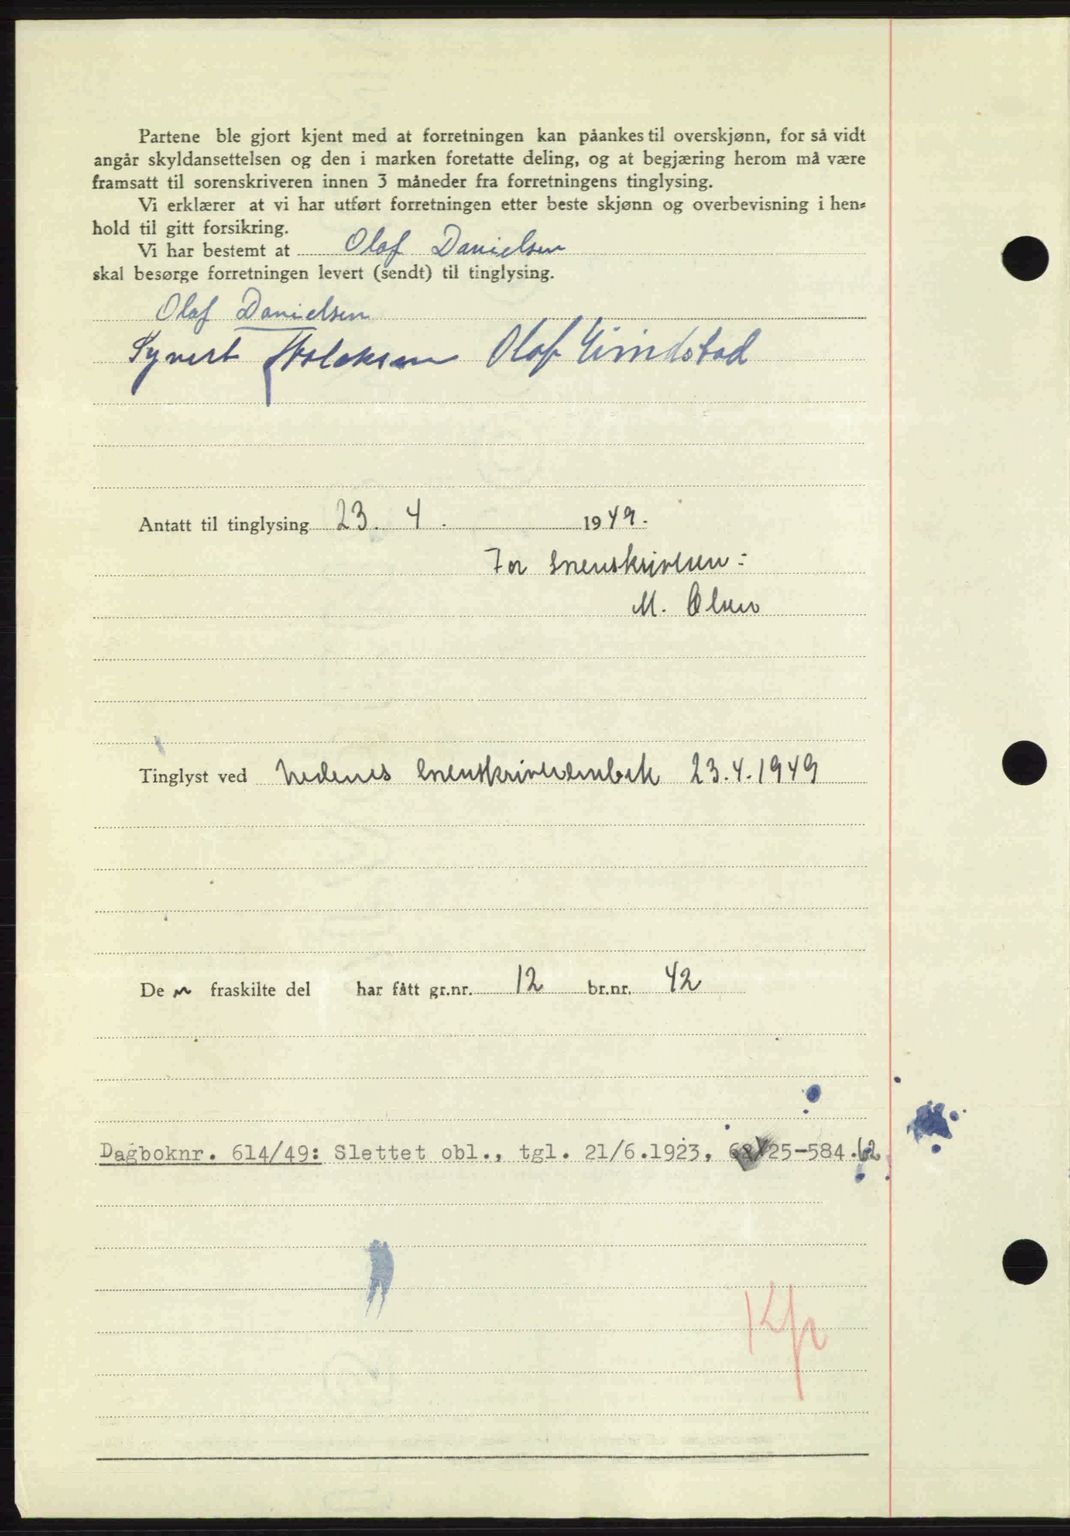 Partene ble gjort kjent med at forretningen kan påankes til overskjønn, for så vidt
angår skyldansettelsen og den i marken foretatte deling, og at begjæring herom må være
framsatt til sorenskriveren innen 3 måneder fra forretningens tinglysing.
Vi erklærer at vi har utført forretningen etter beste skjønn og overbevisning i hen-
hold til gitt forsikring.
Vi har bestemt at Olaf Danielsen
skal besørge forretningen levert (sendt) til tinglysing.
Olaf Danielsen
Syvert Olaf
Antatt til tinglysing 23. 4. 1949.
For sorenskriveren:
M. Olsen
Tinglyst ved Nedenes sorenskriverembete 23.4.1949
De n fraskilte del har fått gr.nr. 12 br.nr. 42
Dagboknr. 614/49: Slettet obl., tgl. 21/6.1923, 25-584.
Kp